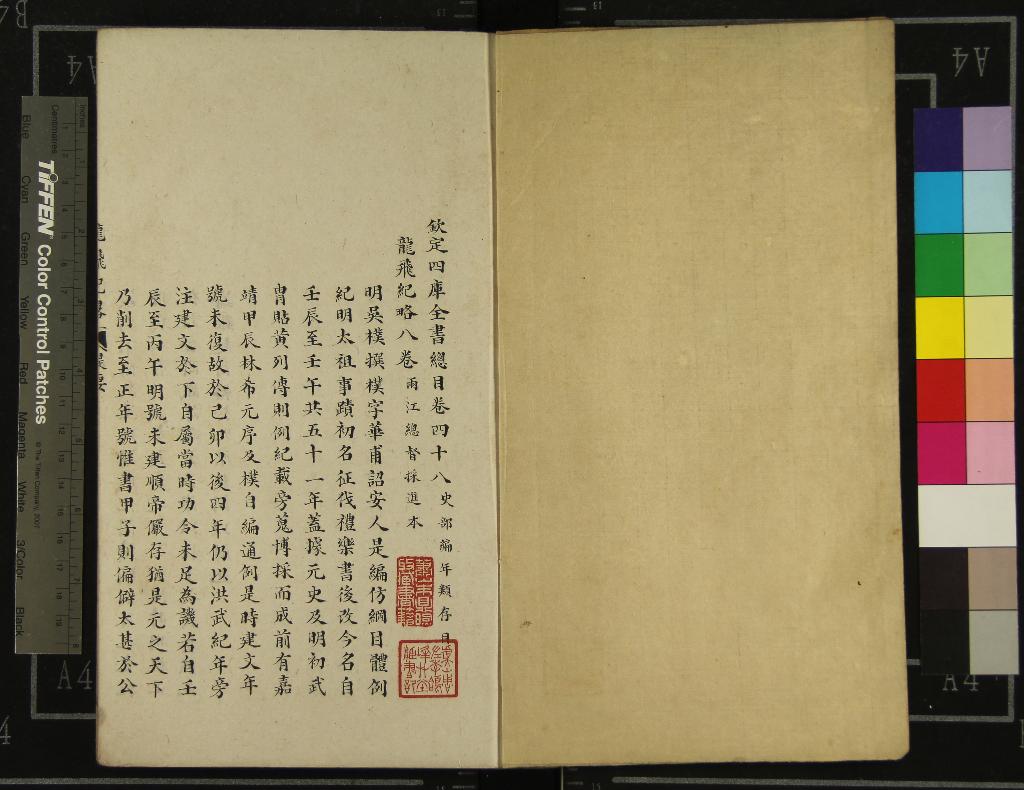 欽定四庫全書總目卷四十八史部編年類存目
龍飛紀略八卷兩江總督採進本
明吳樸撰樸字華甫詔安人是編仿綱目體例
紀明太祖事蹟初名征伐禮樂書後改今名自
壬辰至壬午共五十一年蓋據元史及明初武
冑貼黃列傳則例紀載旁蒐博採而成前有嘉
靖甲辰林希元序及樸自編通例是時建文年
號未復故於己卯以後四年仍以洪武紀年旁
注建文於下自屬當時功令未足為譏若自壬
辰至丙午明號未建順帝儼存猶是元之天下
乃削去至正年號惟書甲子則偏僻太甚於公
龍飛紀畧
TIFFEN Color Control Patches
© The Tiffen Company, 2007
Inches
Centimetres
Blue
Cyan
Green
Yellow
Red
Magenta
White
3/Color
Black
A4
A4
A4
A4
B4